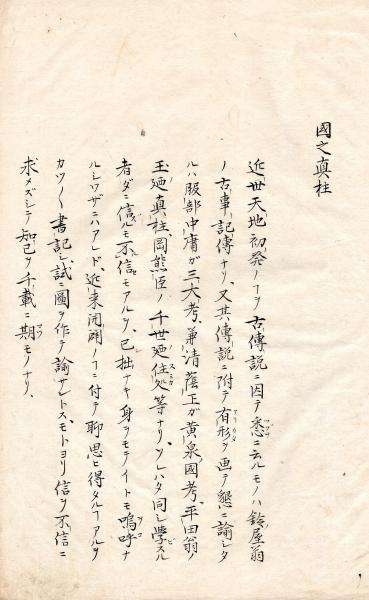 國之真柱
近世天地初発ノヿヲ古傳説ニ因テ悉ニ云ルモノハ鈴屋翁
ノ古事記傳ナリ、又其傳説ニ附テ有形ヲ画テ懇ニ諭シタ
ルハ服部中庸ガ三大考、兼清蔭正ガ黄泉國考、平田翁ノ
玉廼真柱、岡熊臣ノ千世廼住処等ナリ、ソレハタ同シ學スル
者ダニ信ルモ不信モアルヲ、己拙ナキ身ヲモテイトモ嗚呼ナ
ルシワザニハアレド、近来開闢ノヿニ付テ聊思ヒ得タルヿアルヲ
カツ〴〵書記シ、試ニ圖ヲ作テ諭サントス、モトヨリ信ヲ不信ニ
求メズシテ知己ヲ千載ニ期モノナリ、